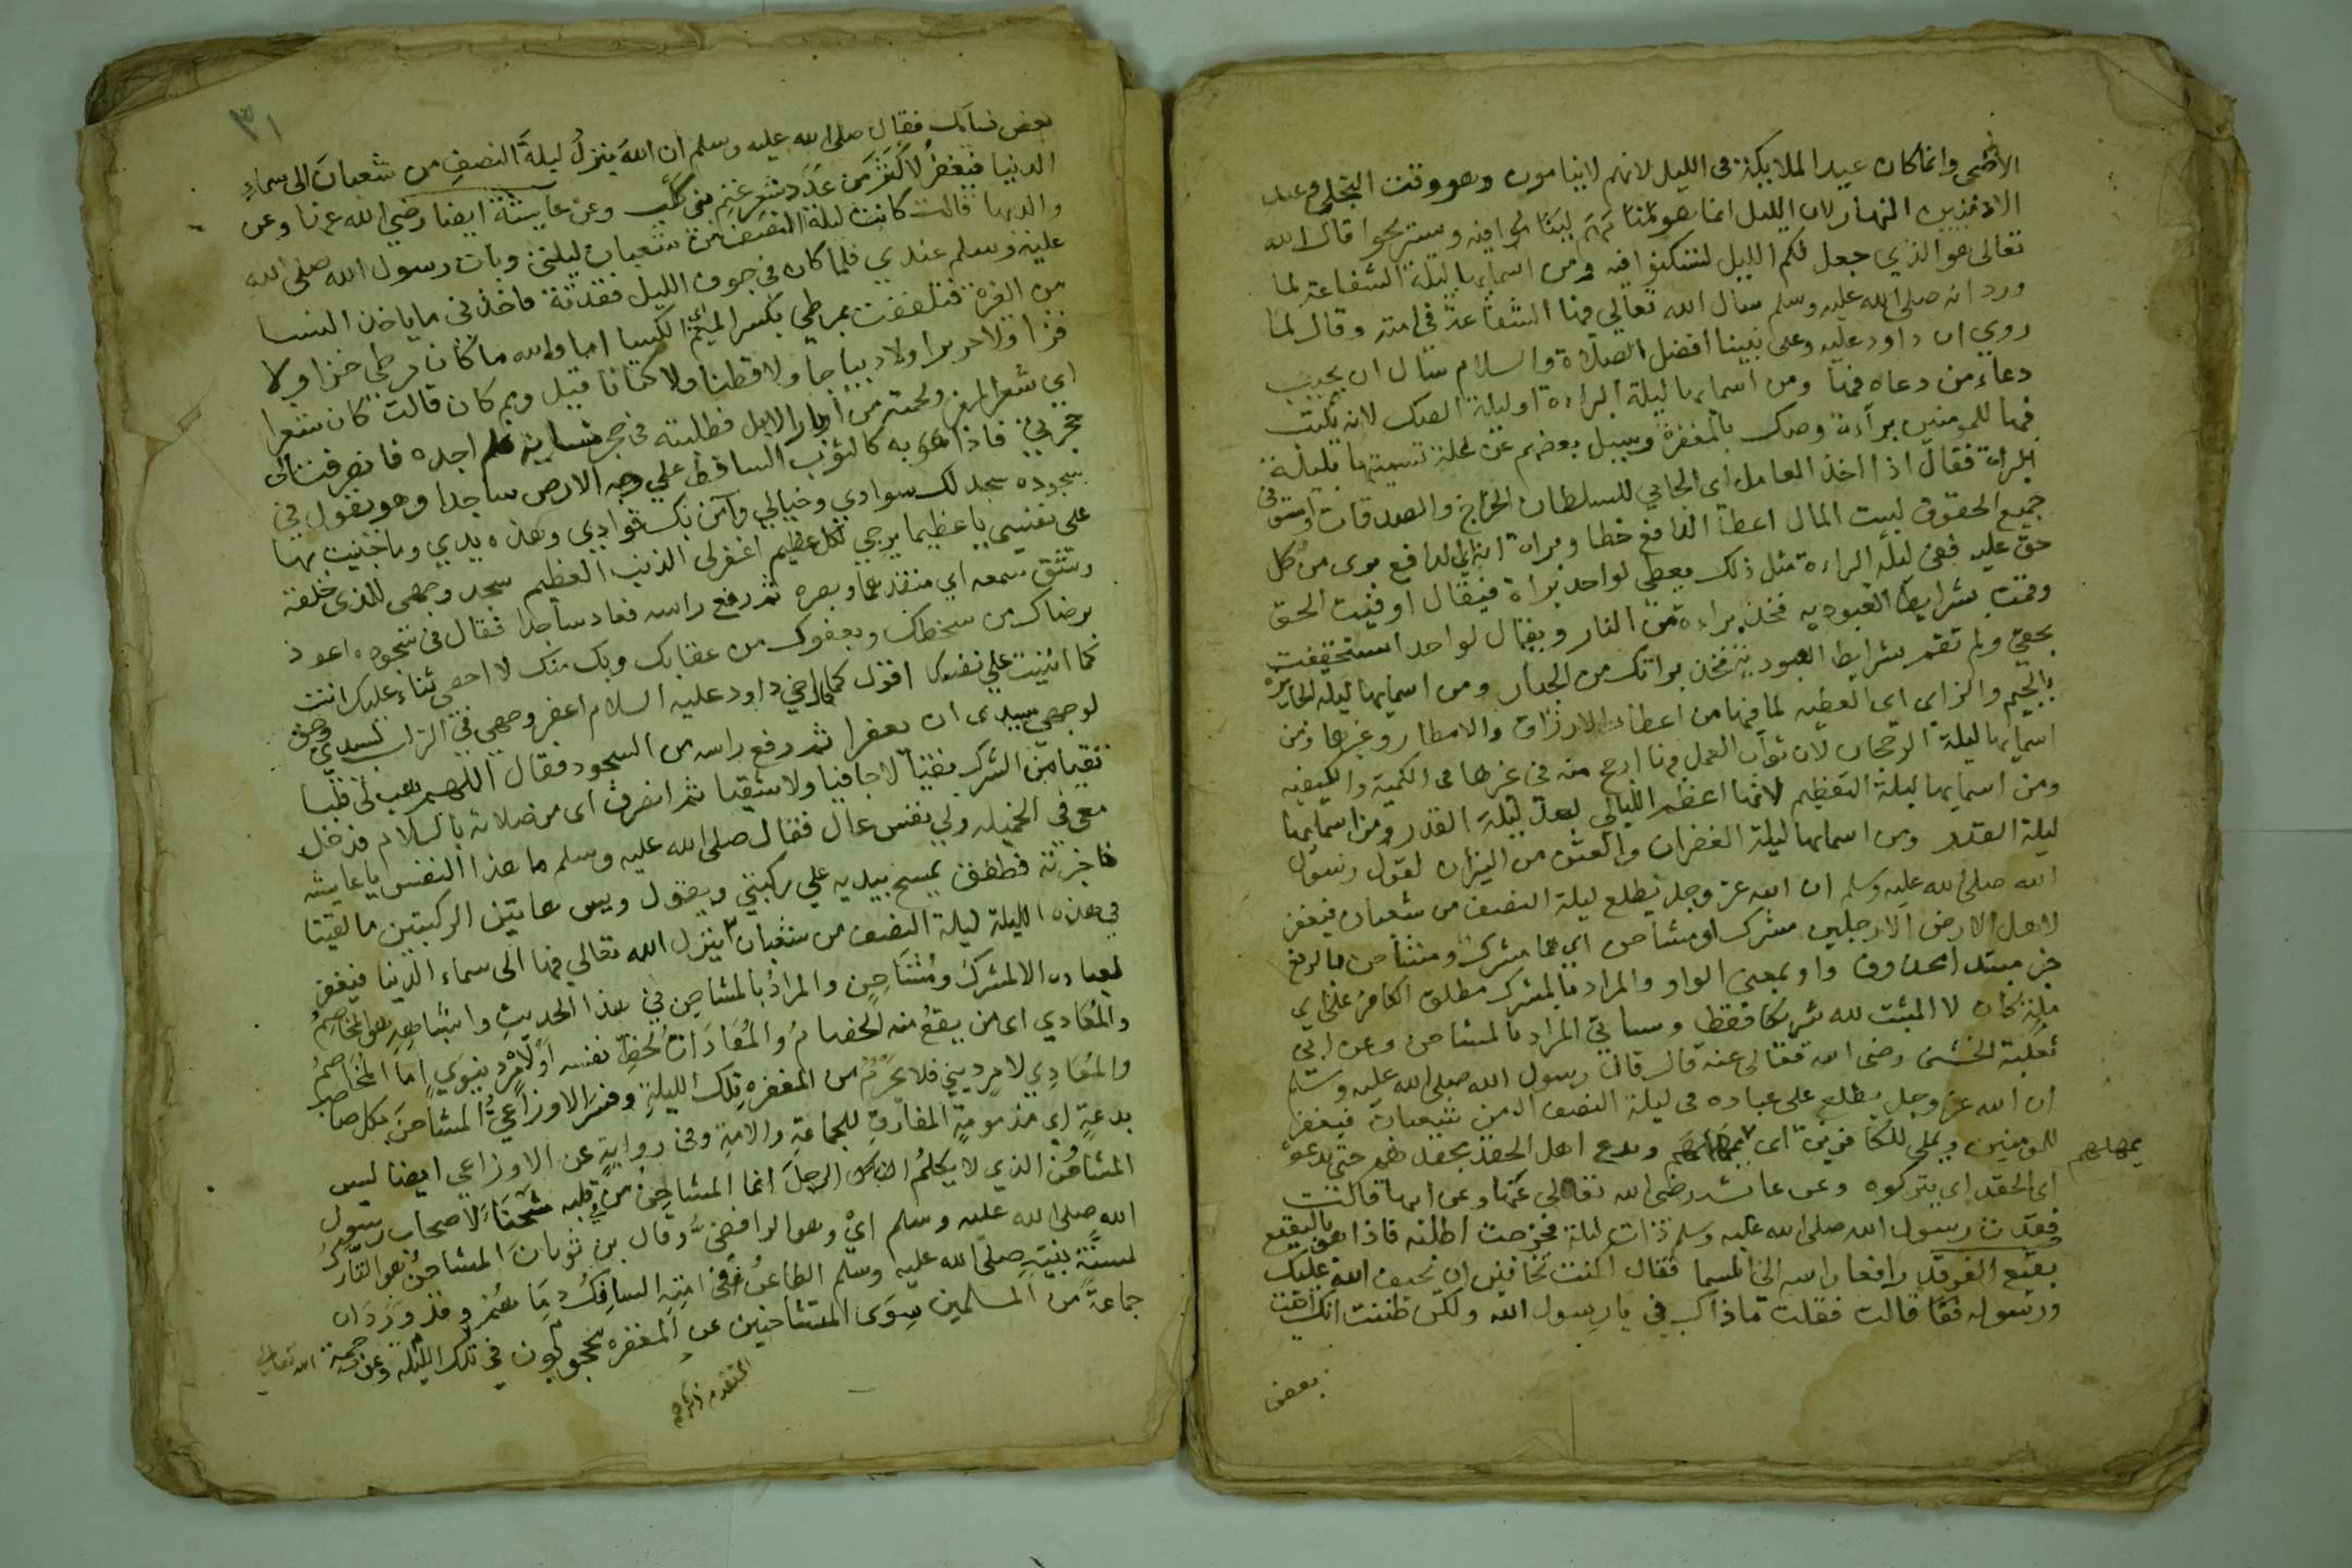 الاضحى وانما كان عيد الملايكة فى الليل لانهم لا ينامون وهو وقت التجلى وعيد
الادميين النهار لان الليل انما هو لمنامهم ليناموا فيه ويستريحوا قال الله
تعالى هو الذي جعل لكم الليل لتسكنوا فيه ومن اسمايها ليلة الشفاعة لما
ورد انه صلى الله عليه وسلم سال الله تعالى فيها الشفاعة في امته وقال لما
روي ان داود عليه وعلى نبينا افضل الصلاة والسلام سال ان يجيب
دعاء من دعاه فيها ومن اسمايها ليلة البراءة او ليلة الصك لانه يكتب
فيها للمومنين براءة وصك بالمغفرة وسيل بعضهم عن علة تسميتها بليلة
البراة فقال اذا اخذ العامل اي الجابي للسلطان الخراج والصدقات واستوفى
جميع الحقوق لبيت المال اعطا الدافع خطا وبراة اي الدافع برى من كل
حق عليه ففى ليلة البراءة مثل ذلك يعطى لواحد براة فيقال اوفيت الحق
وقمت بشرايط العبوديه فخذ براءة من النار ويقال لواحد استخففت
بحقي ولم تقم بشرايط العبودية فخذ براتك من الجنان ومن اسمايها ليلة الجايزة
بالجيم والزاى اى العطيه لما فيها من اعطاء الارزاق والامطار وغيرها ومن
اسمايها ليلة الرجحان لان ثواب العمل فيها ارجح منه في غيرها فى الكمية والكيفيه
ومن اسمايها ليلة التعظيم لانها اعظم الليالي بعد ليلة القدر ومن اسمايها
ليلة القدر ومن اسمايها ليلة الغفران والعتق من النيران لقول رسول
الله صلى الله عليه وسلم ان الله عز وجل يطلع ليلة النصف من شعبان فيغفر
لاهل الارض الا رجلين مشرك او مشاحن اي هما مشرك ومشاحن فالرفع
خبر مبتدا محذوف واو بمعنى الواو والمراد بالمشرك مطلق الكافر على اي
ملة كان لا المثبت لله شريكا فقط وسياتي المراد بالمشاحن وعن ابى
ثعلبة الخشنى رضى الله تعالى عنه قال قال رسول الله صلى الله عليه وسلم
ان الله عز وجل يطلع على عباده فى ليلة النصف من شعبان فيغفر
للمومنين ويملى للكافرين اى يمهلهم ويدع اهل الحقد بحقدهم حتى يدعوه
يمهلهم
اى الحقد اى يتركوه وعن عائشه رضى الله تعالى عنها وعن ابيها قالت
فقدت رسول الله صلى الله عليه وسلم ذات ليلة فخرجت اطلبه فاذا هو بالبقيع
بقيع الغرقد رافعا راسه الى السما فقال اكنت تخافين ان يحيف الله عليك
ورسوله فقا قالت فقلت ماذاك بي يا رسول الله ولكن ظننت انك اتيت
بعض
٣١
بعض نسايك فقال صلى الله عليه وسلم ان الله ينزل ليلة النصف من شعبان الى سماء
الدنيا فيغفر لاكثر من عدد شعر غنم بنى كلب وعن عايشة ايضا رضي الله عنها وعن
والديها قالت كانت ليلة النصف من شعبان ليلتى وبات رسول الله صلى الله
عليه وسلم عندي فلما كان فى جوف الليل فقدته فاخذنى ما ياخذ النسا
من الغيرة فتلففت بمرطي بكسر الميم اى الكسا اما والله ما كان مرطي خزا ولا
قزا ولا حريرا ولا ديباجا ولا قطنا ولا كتانا قيل ومم كان قالت كان شعرا
اي شعر المعز ولحمته من اوبار الابل فطلبته في حجر نسايه فلم اجده فانصرفت الى
حجرتي فاذا هو به كالثوب الساقط علي وجه الارض ساجدا وهو يقول في
سجوده سجد لك سوادي وخيالي وآمن بك فوادي وهذه يدي وما جنيت بها
على نفسي يا عظيما يرجي لكل عظيم اغفر لى الذنب العظيم سجد وجهى للذى خلقه
وشق سمعه اي منفذهما وبصره ثم رفع راسه فعاد ساجدا فقال فى سجوده اعوذ
برضاك من سخطك وبعفوك من عقابك وبك منك لا احصي ثناء عليك انت
كما اثنيت علي نفسك اقول كما قال اخي داود عليه السلام اعفر وجهي في التراب لسيدي وحق
لوجهي سيدى ان يعفرا ثم رفع راسه من السجود فقال اللهم هب لى قلبا
نقيا من الشرك نقيا لا جافيا ولا شقيا ثم انصرف اى من صلاته بالسلام فدخل
معى في الخميله ولي نفس عال فقال صلى الله عليه وسلم ما هذا النفس يا عايشه
فاخبرته فطفق يمسح بيديه علي ركبتي ويقول ويس هاتين الركبتين ما لقيتا
في هذه الليلة ليلة النصف من شعبان ينزل الله تعالي فيها الى سماء الدنيا فيغفر
لعباده الا لمشرك ومشاحن والمراد بالمشاحن في هذا الحديث واشباهه هو المخاصم
والمعادي اى من يقع منه الخصام والمعادات لحظ نفسه او لامر دنيوي اما المخاصم
والمعادي لامر ديني فلا يحرم من المغفره تلك الليلة وفسر الاوزاعي المشاحن بكل صاحب
بدعة اي مذمومة المفارق للجماعة والامة وفى رواية عن الاوزاعي ايضا ليس
المشاحن الذي لا يكلم الرجل انما المشاحن من في قلبه شحنا لاصحاب رسول
الله صلى الله عليه وسلم اي وهو الرافضي وقال بن ثوبان المشاحن هو التارك
لسنة نبيه صلى الله عليه وسلم الطاعن فى امته السافك دماهم وقد ورد ان
جماعة من المسلمين سوى المتشاحنين عن المغفره محجوبون في تلك الليلة وعن رحمة الله تعالى
المتقدم ذكره